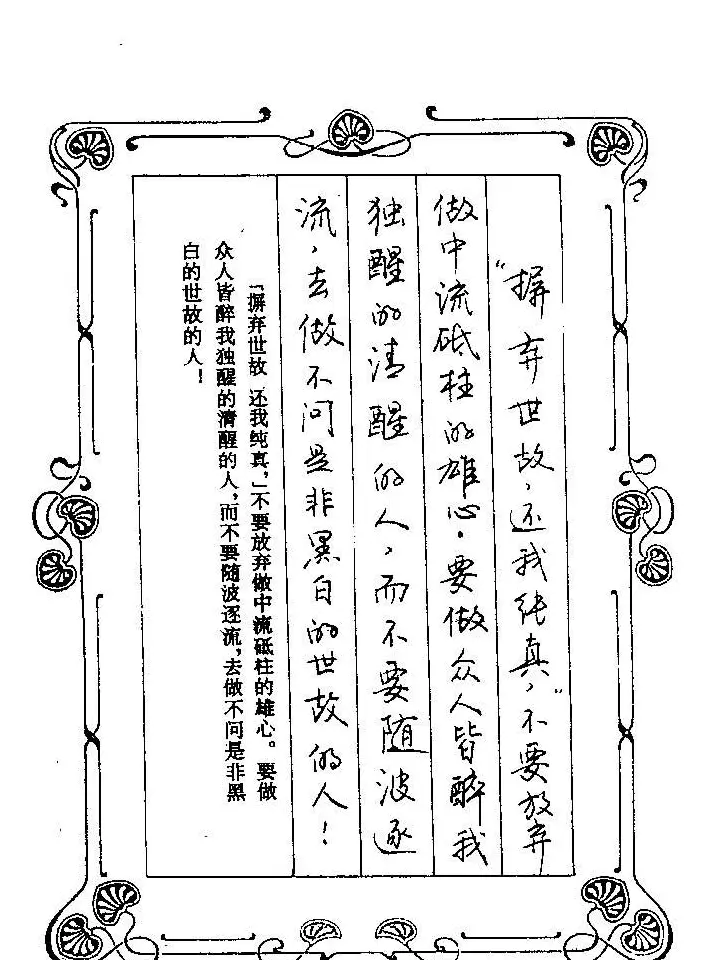 “摒弃世故,还我纯真,”不要放弃
做中流砥柱的雄心.要做众人皆醉我
独醒的清醒的人,而不要随波逐
流,去做不问是非黑白的世故的人!
「摒弃世故 还我纯真,」不要放弃做中流砥柱的雄心。要做
众人皆醉我独醒的清醒的人,而不要随波逐流,去做不问是非黑
白的世故的人!